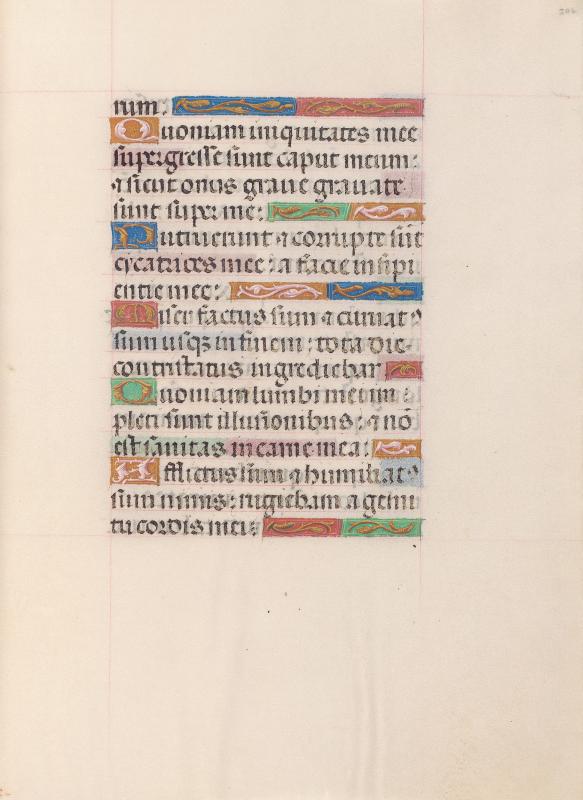 202
rum:
Quoniam iniquitates mee
supergresse sunt caput meum:
⁊ sicut onus graue grauate
sunt super me:
Putruerunt ⁊ corrupte sūt
cycatrices mee: a facie insipi
entie mee:
Miser factus sum ⁊ curuatꝰ
sum usqꝫ in finem: tota die
contristatus ingrediebar
Quoniam lumbi mei im
pleti sunt illusionibus: ⁊ nō
est sanitas in carne mea:
Afflictus sum ⁊ humiliatꝰ
sum nimis: rugiebam a gemi
tu cordis mei: